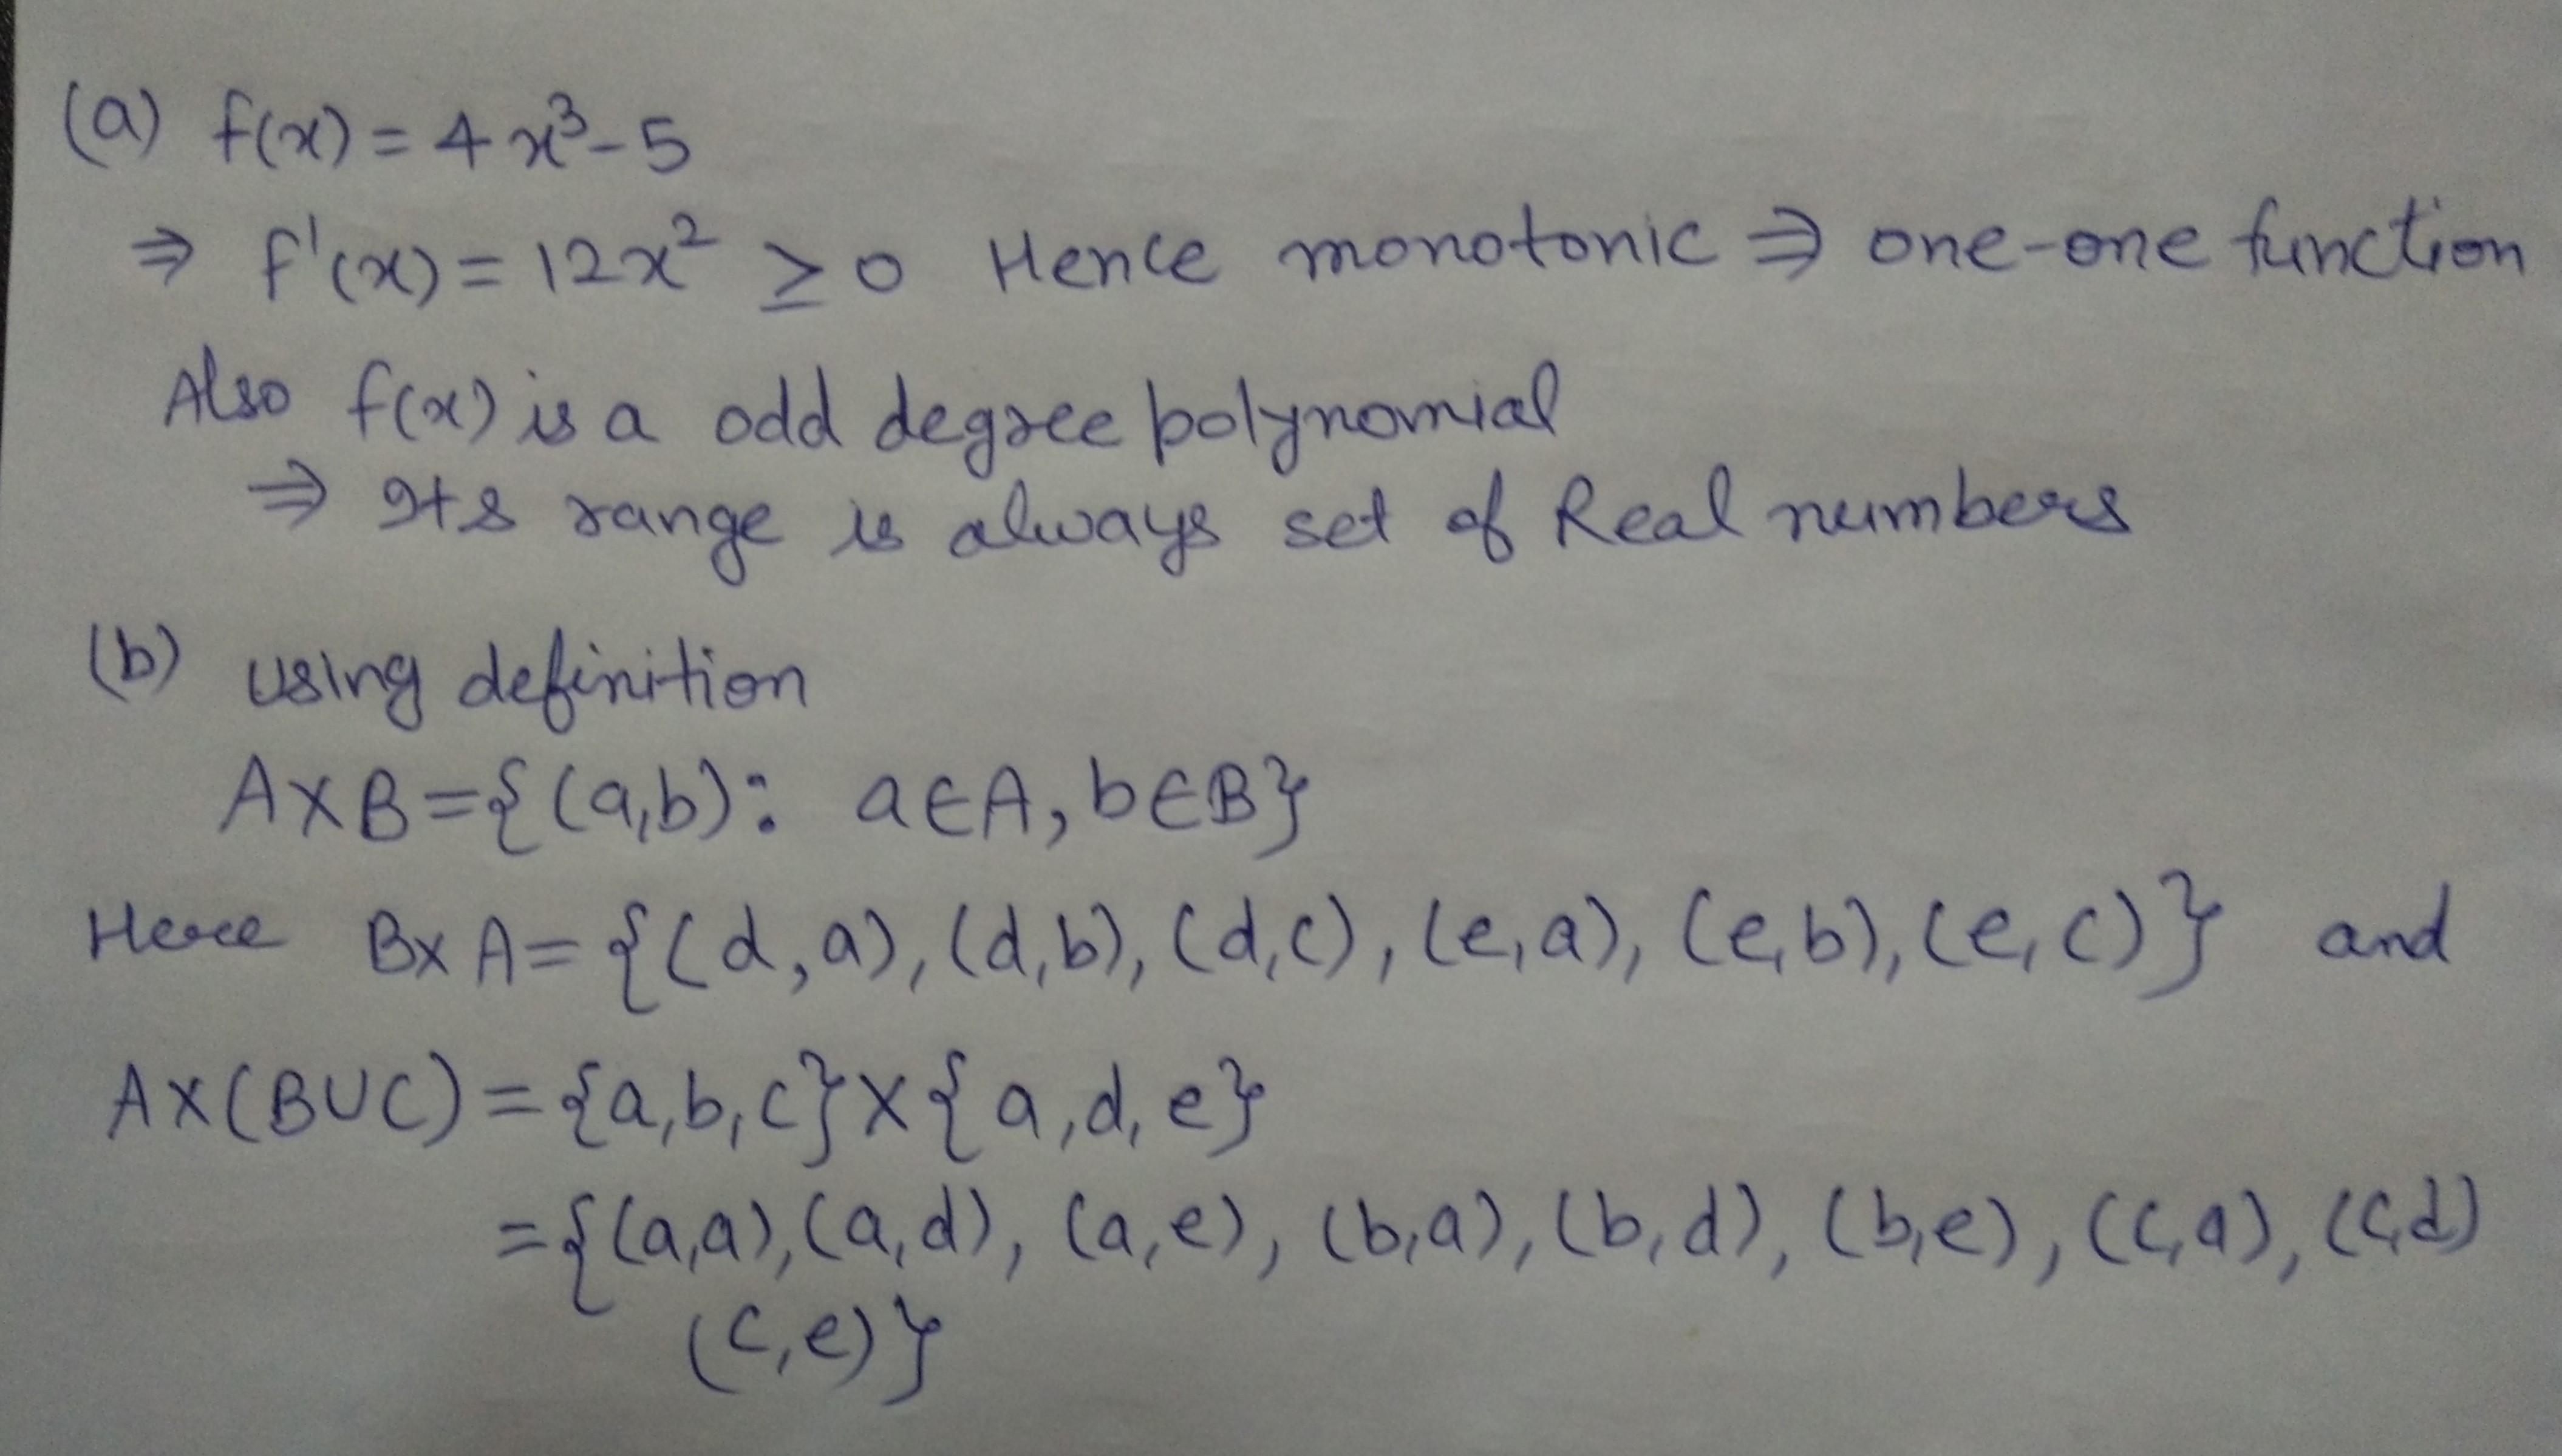 (a) f(x) = 4x³-5
⇒ f'(x) = 12x² ≥ 0 Hence monotonic ⇒ one-one function
Also f(x) is a odd degree polynomial
⇒ Its range is always set of Real numbers
(b) using definition
A×B={(a,b): a∈A, b∈B}
Here B×A={(d,a),(d,b),(d,c),(e,a),(e,b),(e,c)} and
A×(B∪C)={a,b,c}×{a,d,e}
={(a,a),(a,d),(a,e),(b,a),(b,d),(b,e),(c,a),(c,d)
(c,e)}